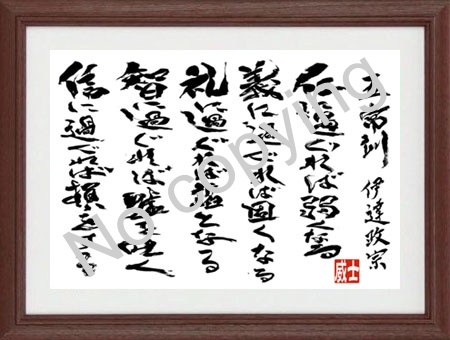 五常訓 伊達政宗
仁に過ぐれば弱くなる
義に過ぐれば固くなる
礼に過ぐれば諂となる
智に過ぐれば嘘を吐く
信に過ぐれば損をする
威士
No copying